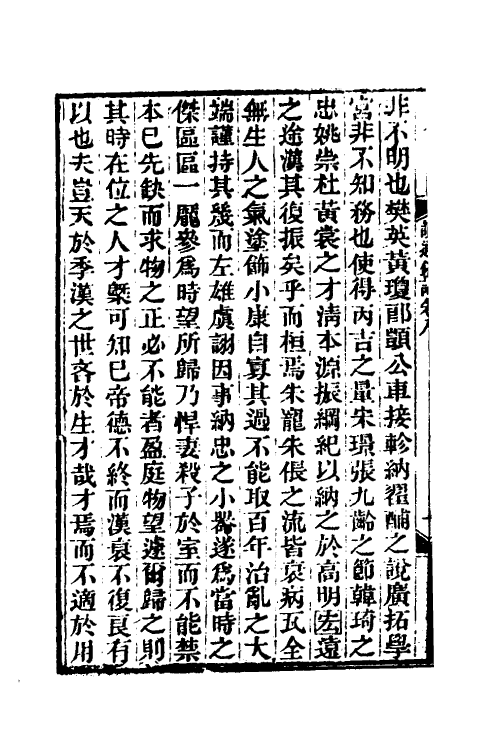 非不明也樊英黃瓊郎顗公車接軫納翟酺之說廣拓學
宮非不知務也使得丙吉之量宋璟張九齡之節韓琦之
忠姚崇杜黃裳之才淸本源振綱紀以納之於高明宏遠
之途漢其復振矣乎而桓焉朱寵朱倀之流皆衰病瓦全
無生人之氣塗飾小康自寡其過不能取百年治亂之大
端謹持其幾而左雄虞詡因事納忠之小器遂爲當時之
傑區區一龐參爲時望所歸乃悍妻殺子於室而不能禁
本已先缺而求物之正必不能者盈庭物望遽爾歸之則
其時在位之人才槩可知已帝德不終而漢衰不復良有
以也夫豈天於季漢之世吝於生才哉才焉而不適於用
讀通鑑論卷八